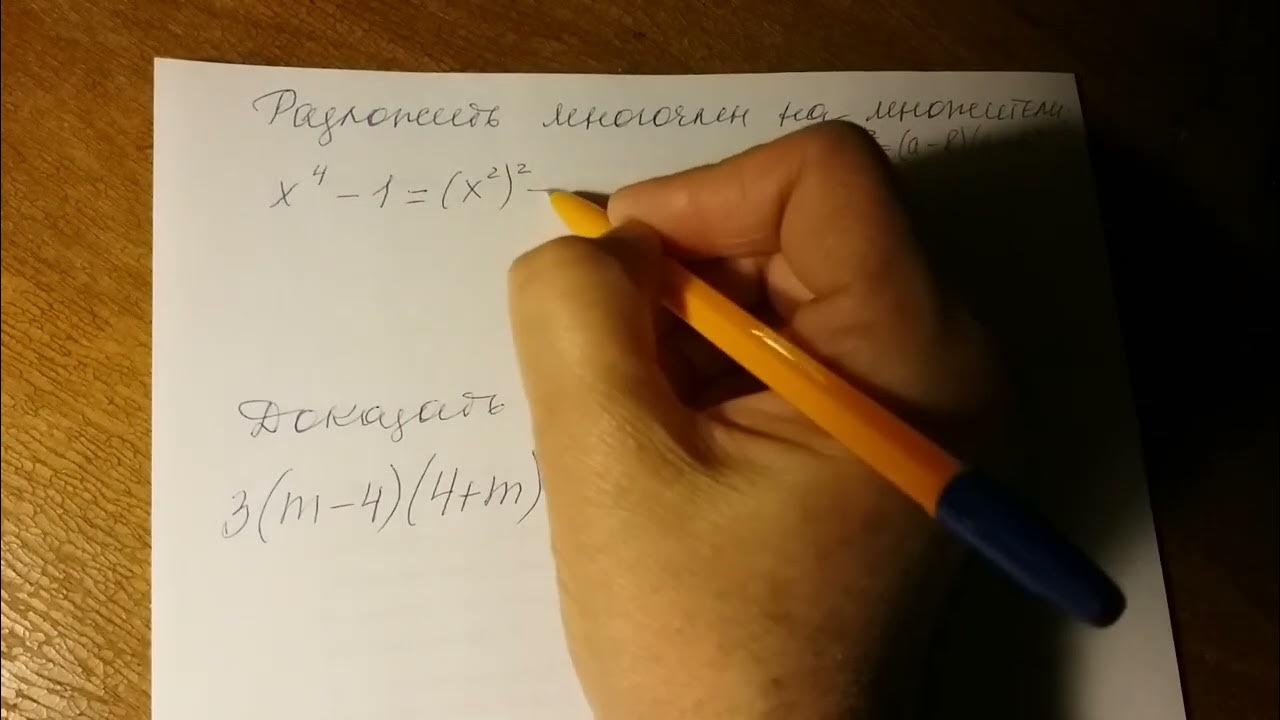 Разложить многочлен на множители.
=(a-b)(
x⁴-1=(x²)²-
Доказать
3(m-4)(4+m)